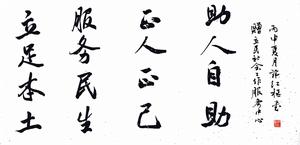 助人自助
正人正己
服务民生
立足本土
丙申夏月
赠立民社会工作服务中心